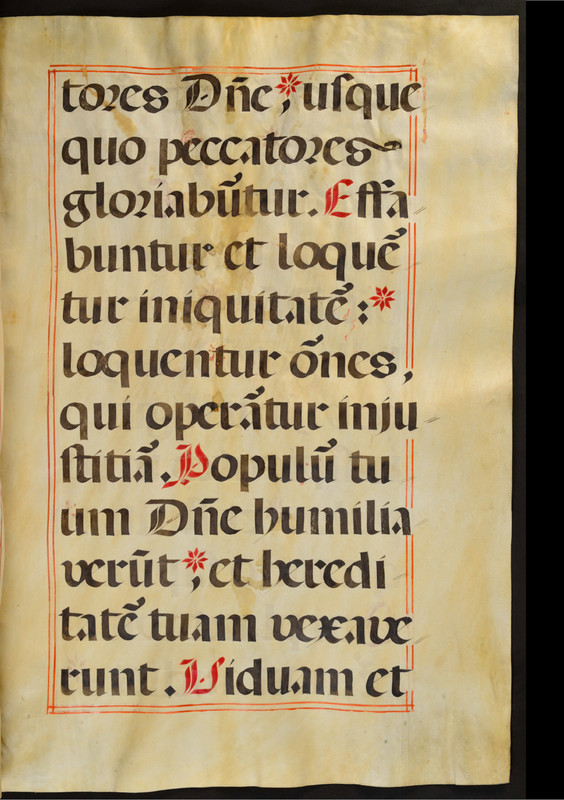 tores Dñe;* usque
quo peccatores~
gloriabūtur. Effa
buntur et loquē
tur iniquitatē :*
loquentur ōnes,
qui operātur inju
stitiā. Populū tu
um Dñe humilia
verūt;* et heredi
tatē tuam vexave
runt. Viduam et